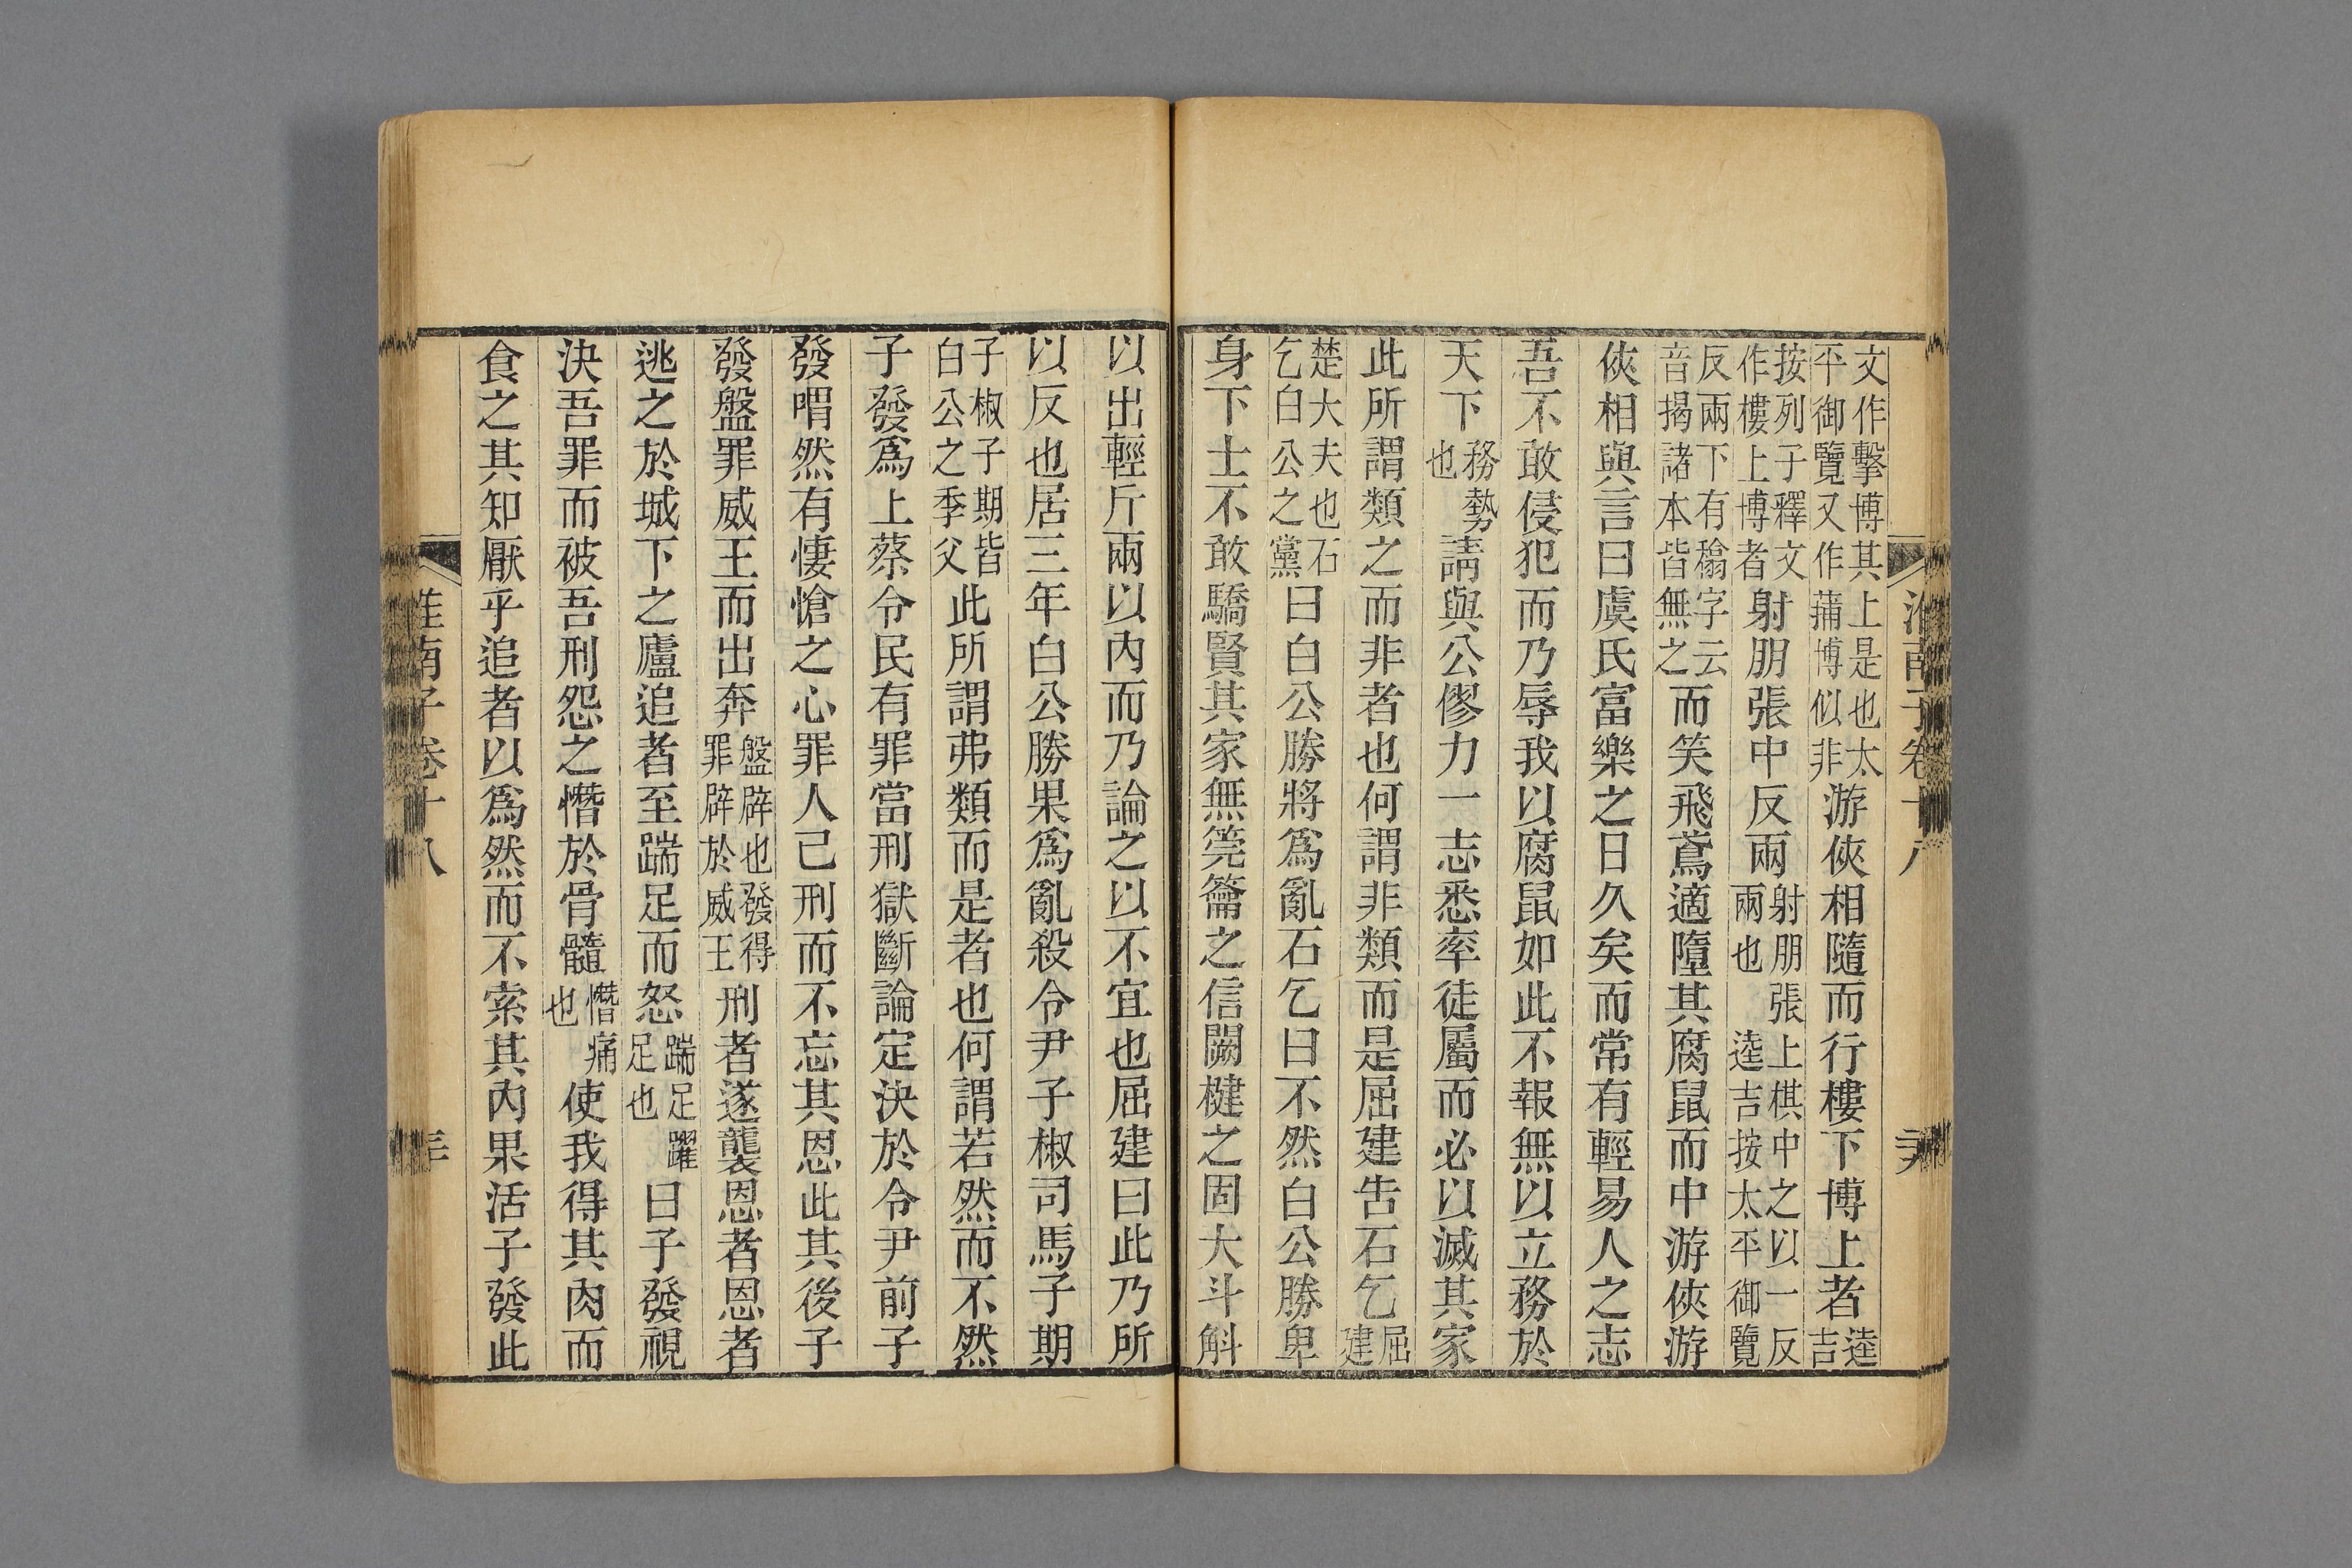 文作擊博其上是也太平御覽又作蒱博似非游俠相隨而行樓下博上者逵吉
按列子釋文作樓上博者射朋張中反兩射朋張上棋中之以一反兩也逵吉按太平御覽
反兩下有䲒字云音揭諸本皆無之而笑飛鳶適墮其腐鼠而中游俠游
俠相與言曰虞氏富樂之日久矣而常有輕易人之志
吾不敢侵犯而乃辱我以腐鼠如此不報無以立務於
天下務勢也請與公僇力一志悉率徒屬而必以滅其家
此所謂類之而非者也何謂非類而是屈建告石乞屈建
楚大夫也石乞白公之黨曰白公勝將爲亂石乞曰不然白公勝卑
身下士不敢驕賢其家無筦籥之信關楗之固大斗斛
以出輕斤兩以內而乃論之以不宜也屈建曰此乃所
以反也居三年白公勝果爲亂殺令尹子椒司馬子期
子椒子期皆白公之季父此所謂弗類而是者也何謂若然而不然
子發爲上蔡令民有罪當刑獄斷論定決於令尹前子
發喟然有悽愴之心罪人已刑而不忘其恩此其後子
發盤罪威王而出奔盤辟也發得罪辟於威王刑者遂襲恩者恩者
逃之於城下之廬追者至踹足而怒踹足躍足也曰子發視
決吾罪而被吾刑怨之憯於骨髓憯痛也使我得其肉而
食之其知厭乎追者以爲然而不索其內果活子發此
淮南子卷十八